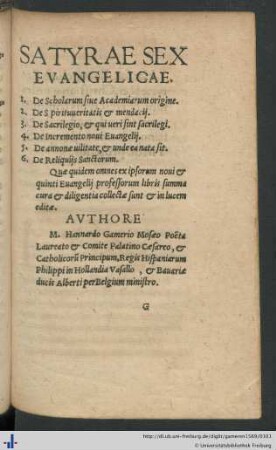 SATYRAE SEX
EVANGELICAE.
1. De Scholarum siue Academiarum origine.
2. De Spirituueritatis & mendacij.
3. De Sacrilegio, & qui ueri sint sacrilegi.
4. De incremento noui Euangelij.
5. De annonæ uilitate, & unde ea nata sit.
6. De Reliquijs Sanctorum.
Quæ quidem omnes ex ipsorum noui &
quinti Euangelij professorum libris summa
cura & diligentia collectæ sunt & in lucem
editæ.
AVTHORE
M. Hannardo Gamerio Mosæo Poëta
Laureato & Comite Palatino Cæsareo, &
Catholicorū Principum, Regis Hispaniarum
Philippi in Hollandia Vasallo, & Bauariæ
ducis Alberti per Belgium ministro.
G
http://dl.ub.uni-freiburg.de/diglit/gameren1569/0103
© Universitätsbibliothek Freiburg